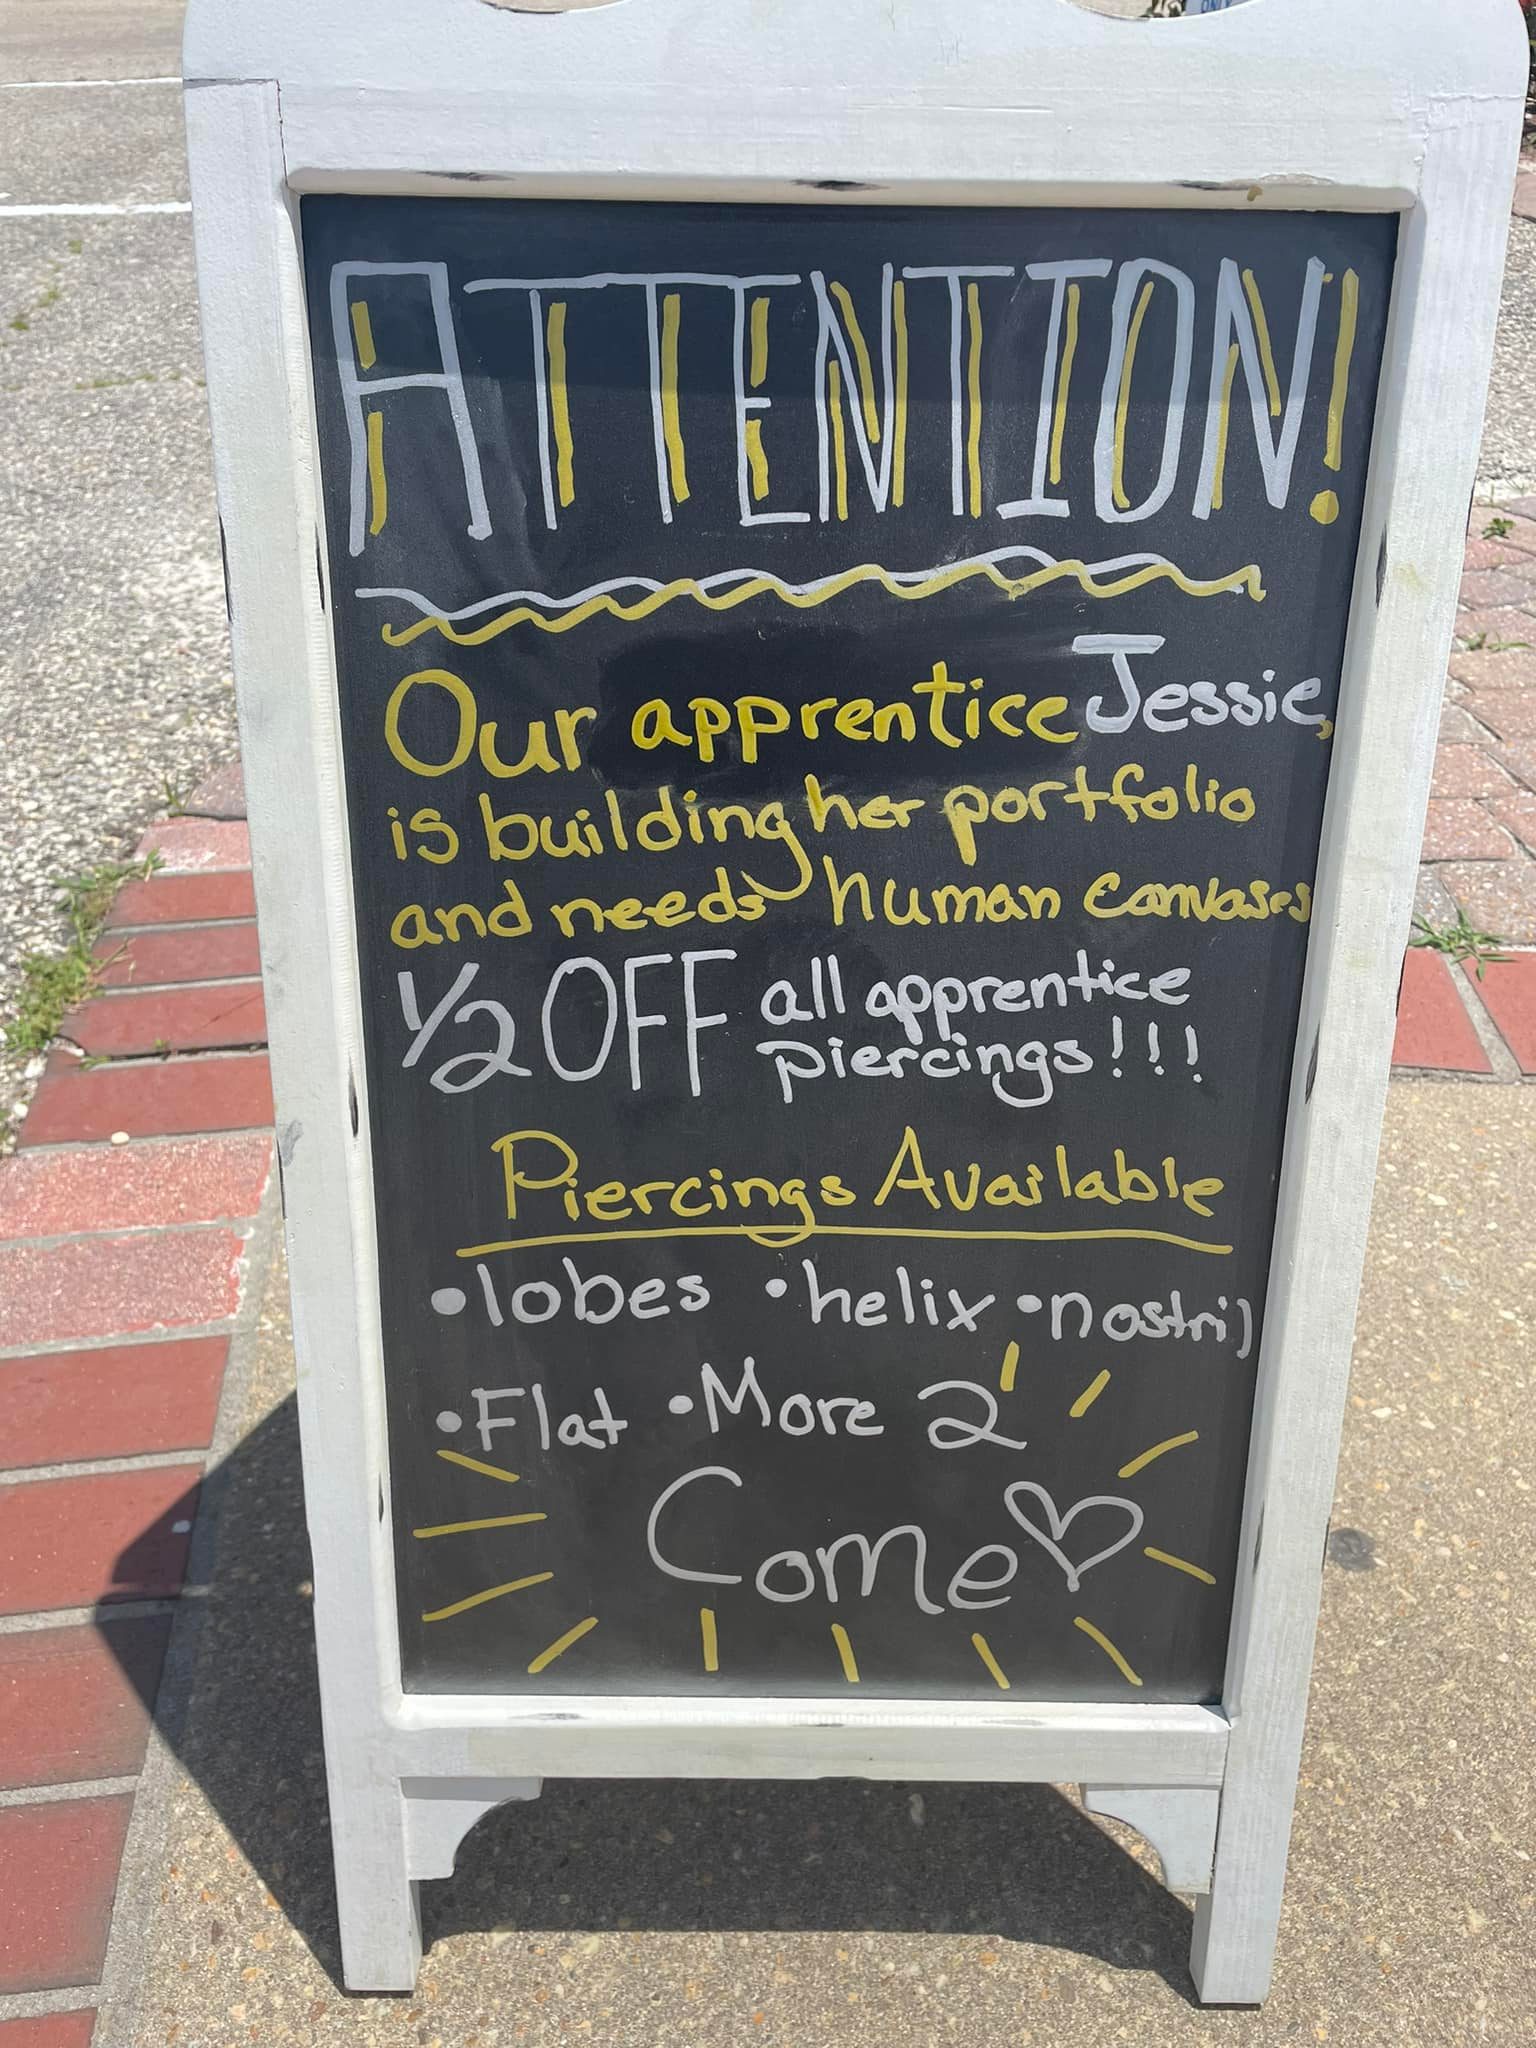 ATTENTION!
Our apprentice Jessie,
is building her portfolio
and needs human canvases
1/2 OFF all apprentice
piercings!!!
Piercings Available
•lobes •helix •nostril
•Flat •More 2
Come♡
ONLY